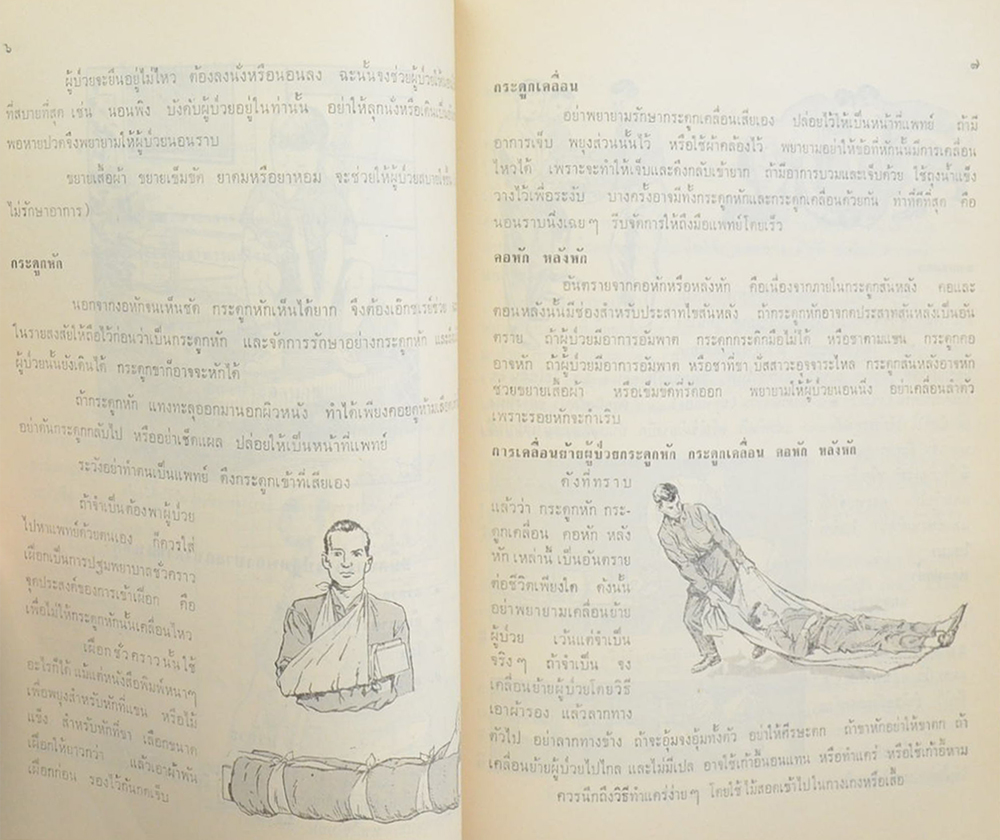 ๖
ผู้ป่วยจะยืนอยู่ไม่ไหว ต้องลงนั่งหรือนอนลง ฉะนั้นจงช่วยผู้ป่วย
ที่สบายที่สุด เช่น นอนพิง บังคับผู้ป่วยอยู่ในท่านั้น อย่าให้ลุกนั่งหรือเดิน
พอหายปวดจึงพยายามให้ผู้ป่วยนอนราบ
ขยายเสื้อผ้า ขยายเข็มขัด ยาดมหรือยาหอม จะช่วยให้ผู้ป่วยสบาย
ไม่รักษาอาการ)
กระดูกหัก
นอกจากงอหักจนเห็นชัด กระดูกหักเห็นได้ยาก จึงต้องเอ๊กซเรย์ช่วย
ในรายสงสัยให้ถือไว้ก่อนว่าเป็นกระดูกหัก และจัดการรักษาอย่างกระดูกหัก
ผู้ป่วยนั้นยังเดินได้ กระดูกขาก็อาจจะหักได้
ถ้ากระดูกหัก แทงทะลุออกมานอกผิวหนัง ทำได้เพียงคอยดูห้ามเลือด
อย่าดันกระดูกกลับไป หรืออย่าเช็ดแผล ปล่อยให้เป็นหน้าที่แพทย์
ระวังอย่าทำตนเป็นแพทย์ ดึงกระดูกเข้าที่เสียเอง
ถ้าจำเป็นต้องพาผู้ป่วย
ไปหาแพทย์ด้วยตนเอง ก็ควรใส่
เฝือกเป็นการปฐมพยาบาลชั่วคราว
จุดประสงค์ของการเข้าเฝือก คือ
เพื่อไม่ให้กระดูกหักนั้นเคลื่อนไหว
เฝือกชั่วคราวนั้นใช้
อะไรก็ได้ แม้แต่หนังสือพิมพ์หนาๆ
เพื่อพยุงสำหรับหักที่แขน หรือไม้
แข็ง สำหรับหักที่ขา เลือกขนาด
เฝือกให้ยาวกว่า แล้วเอาผ้าพัน
เฝือกก่อน รองไว้กันกดเจ็บ
๗
กระดูกเคลื่อน
อย่าพยายามรักษากระดูกเคลื่อนเสียเอง ปล่อยไว้ให้เป็นหน้าที่แพทย์ ถ้ามี
อาการเจ็บ พยุงส่วนนั้นไว้ หรือใช้ผ้าคล้องไว้ พยายามอย่าให้ข้อที่หักนั้นมีการเคลื่อน
ไหวได้ เพราะจะทำให้เจ็บและดึงกลับเข้ายาก ถ้ามีอาการบวมและเจ็บด้วย ใช้ถุงน้ำแข็ง
วางไว้เพื่อระงับ บางครั้งอาจมีทั้งกระดูกหักและกระดูกเคลื่อนด้วยกัน ท่าที่ดีที่สุด คือ
นอนราบนิ่งเฉยๆ รีบจัดการให้ถึงมือแพทย์โดยเร็ว
คอหัก หลังหัก
อันตรายจากคอหักหรือหลังหัก คือเนื่องจากภายในกระดูกสันหลัง คอและ
ตอนหลังนั้นมีช่องสำหรับประสาทไขสันหลัง ถ้ากระดูกหักอาจกดประสาทสันหลังเป็นอัน
ตราย ถ้าผู้ป่วยมีอาการอัมพาต กระดุกกระดิกมือไม่ได้ หรือชาตามแขน กระดูกคอ
อาจหัก ถ้าผู้ป่วยมีอาการอัมพาต หรือชาที่ขา ปัสสาวะอุจจาระไหล กระดูกสันหลังอาจหัก
ช่วยขยายเสื้อผ้า หรือเข็มขัดที่รัดออก พยายามให้ผู้ป่วยนอนนิ่ง อย่าเคลื่อนลำตัว
เพราะรอยหักจะกำเริบ
การเคลื่อนย้ายผู้ป่วยกระดูกหัก กระดูกเคลื่อน คอหัก หลังหัก
ดังที่ทราบ
แล้วว่า กระดูกหัก กระ-
ดูกเคลื่อน คอหัก หลัง
หัก เหล่านี้ เป็นอันตราย
ต่อชีวิตเพียงใด ดังนั้น
อย่าพยายามเคลื่อนย้าย
ผู้ป่วย เว้นแต่จำเป็น
จริงๆ ถ้าจำเป็น จง
เคลื่อนย้ายผู้ป่วยโดยวิธี
เอาผ้ารอง แล้วลากทาง
หัวไป อย่าลากทางข้าง ถ้าจะอุ้มจงอุ้มทั้งตัว อย่าให้ศีรษะตก ถ้าขาหักอย่าให้ขาตก ถ้า
เคลื่อนย้ายผู้ป่วยไปไกล และไม่มีเปล อาจใช้เก้าอี้นอนแทน หรือทำแคร่ หรือใช้เก้าอี้หาม
ควรนึกถึงวิธีทำแคร่ง่ายๆ โดยใช้ไม้สอดเข้าไปในกางเกงหรือเสื้อ